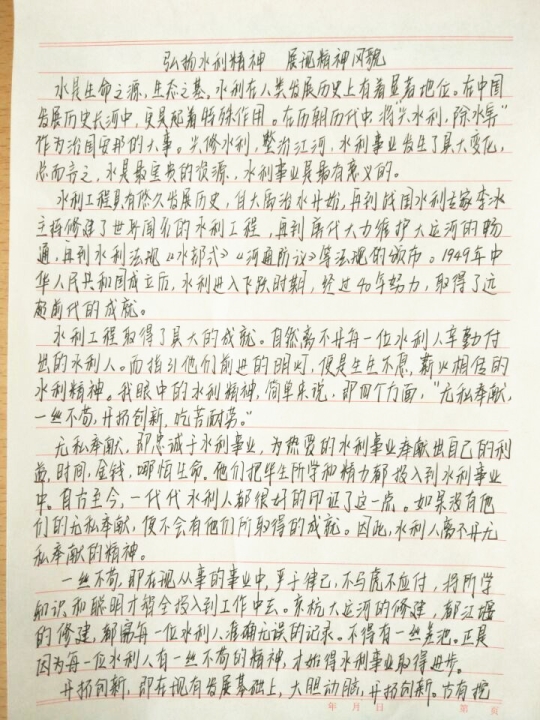 弘扬水利精神 展现精神风貌
水是生命之源,生态之基,水利在人类发展历史上有着显著地位。在中国
发展历史长河中,更是起着特殊作用。在历朝历代中,将"兴水利,除水害"
作为治国安邦的大事。兴修水利,整治江河,水利事业发生了具大变化,
总而言之,水是最宝贵的资源,水利事业是最有意义的。
水利工程具有悠久发展历史,自大禹治水开始,再到战国水利专家李冰
主持修建了世界闻名的水利工程,再到唐代大力维护大运河的畅
通,再到水利法规《水部式》《河通防议》等法规的颁布。1949年中
华人民共和国成立后,水利进入飞跃时期,经过40年努力,取得了远
超前代的成就。
水利工程取得了具大的成就。自然离不开每一位水利人辛勤付
出的水利人。而指引他们前进的明灯,便是生生不息,薪火相传的
水利精神。我眼中的水利精神,简单来说,即四个方面,"无私奉献,
一丝不苟,开拓创新,吃苦耐劳。"
无私奉献,即忠诚于水利事业,为热爱的水利事业奉献出自己的利
益,时间,金钱,哪怕生命。他们把毕生所学和精力都投入到水利事业
中。自古至今,一代代水利人都很好的印证了这一点。如果没有他
们的无私奉献,便不会有他们所取得的成就。因此,水利人离不开无
私奉献的精神。
一丝不苟,即在现从事的事业中,严于律己,不马虎不应付,将所学
知识和聪明才智全投入到工作中去。京杭大运河的修建,都江堰
的修建,都需每一位水利人准确无误的记录。不得有一丝差池。正是
因为每一位水利人有一丝不苟的精神,才始得水利事业取得进步。
开拓创新,即在现有发展基础上,大胆动脑,开拓创新。古有挖
年 月 日 第 页